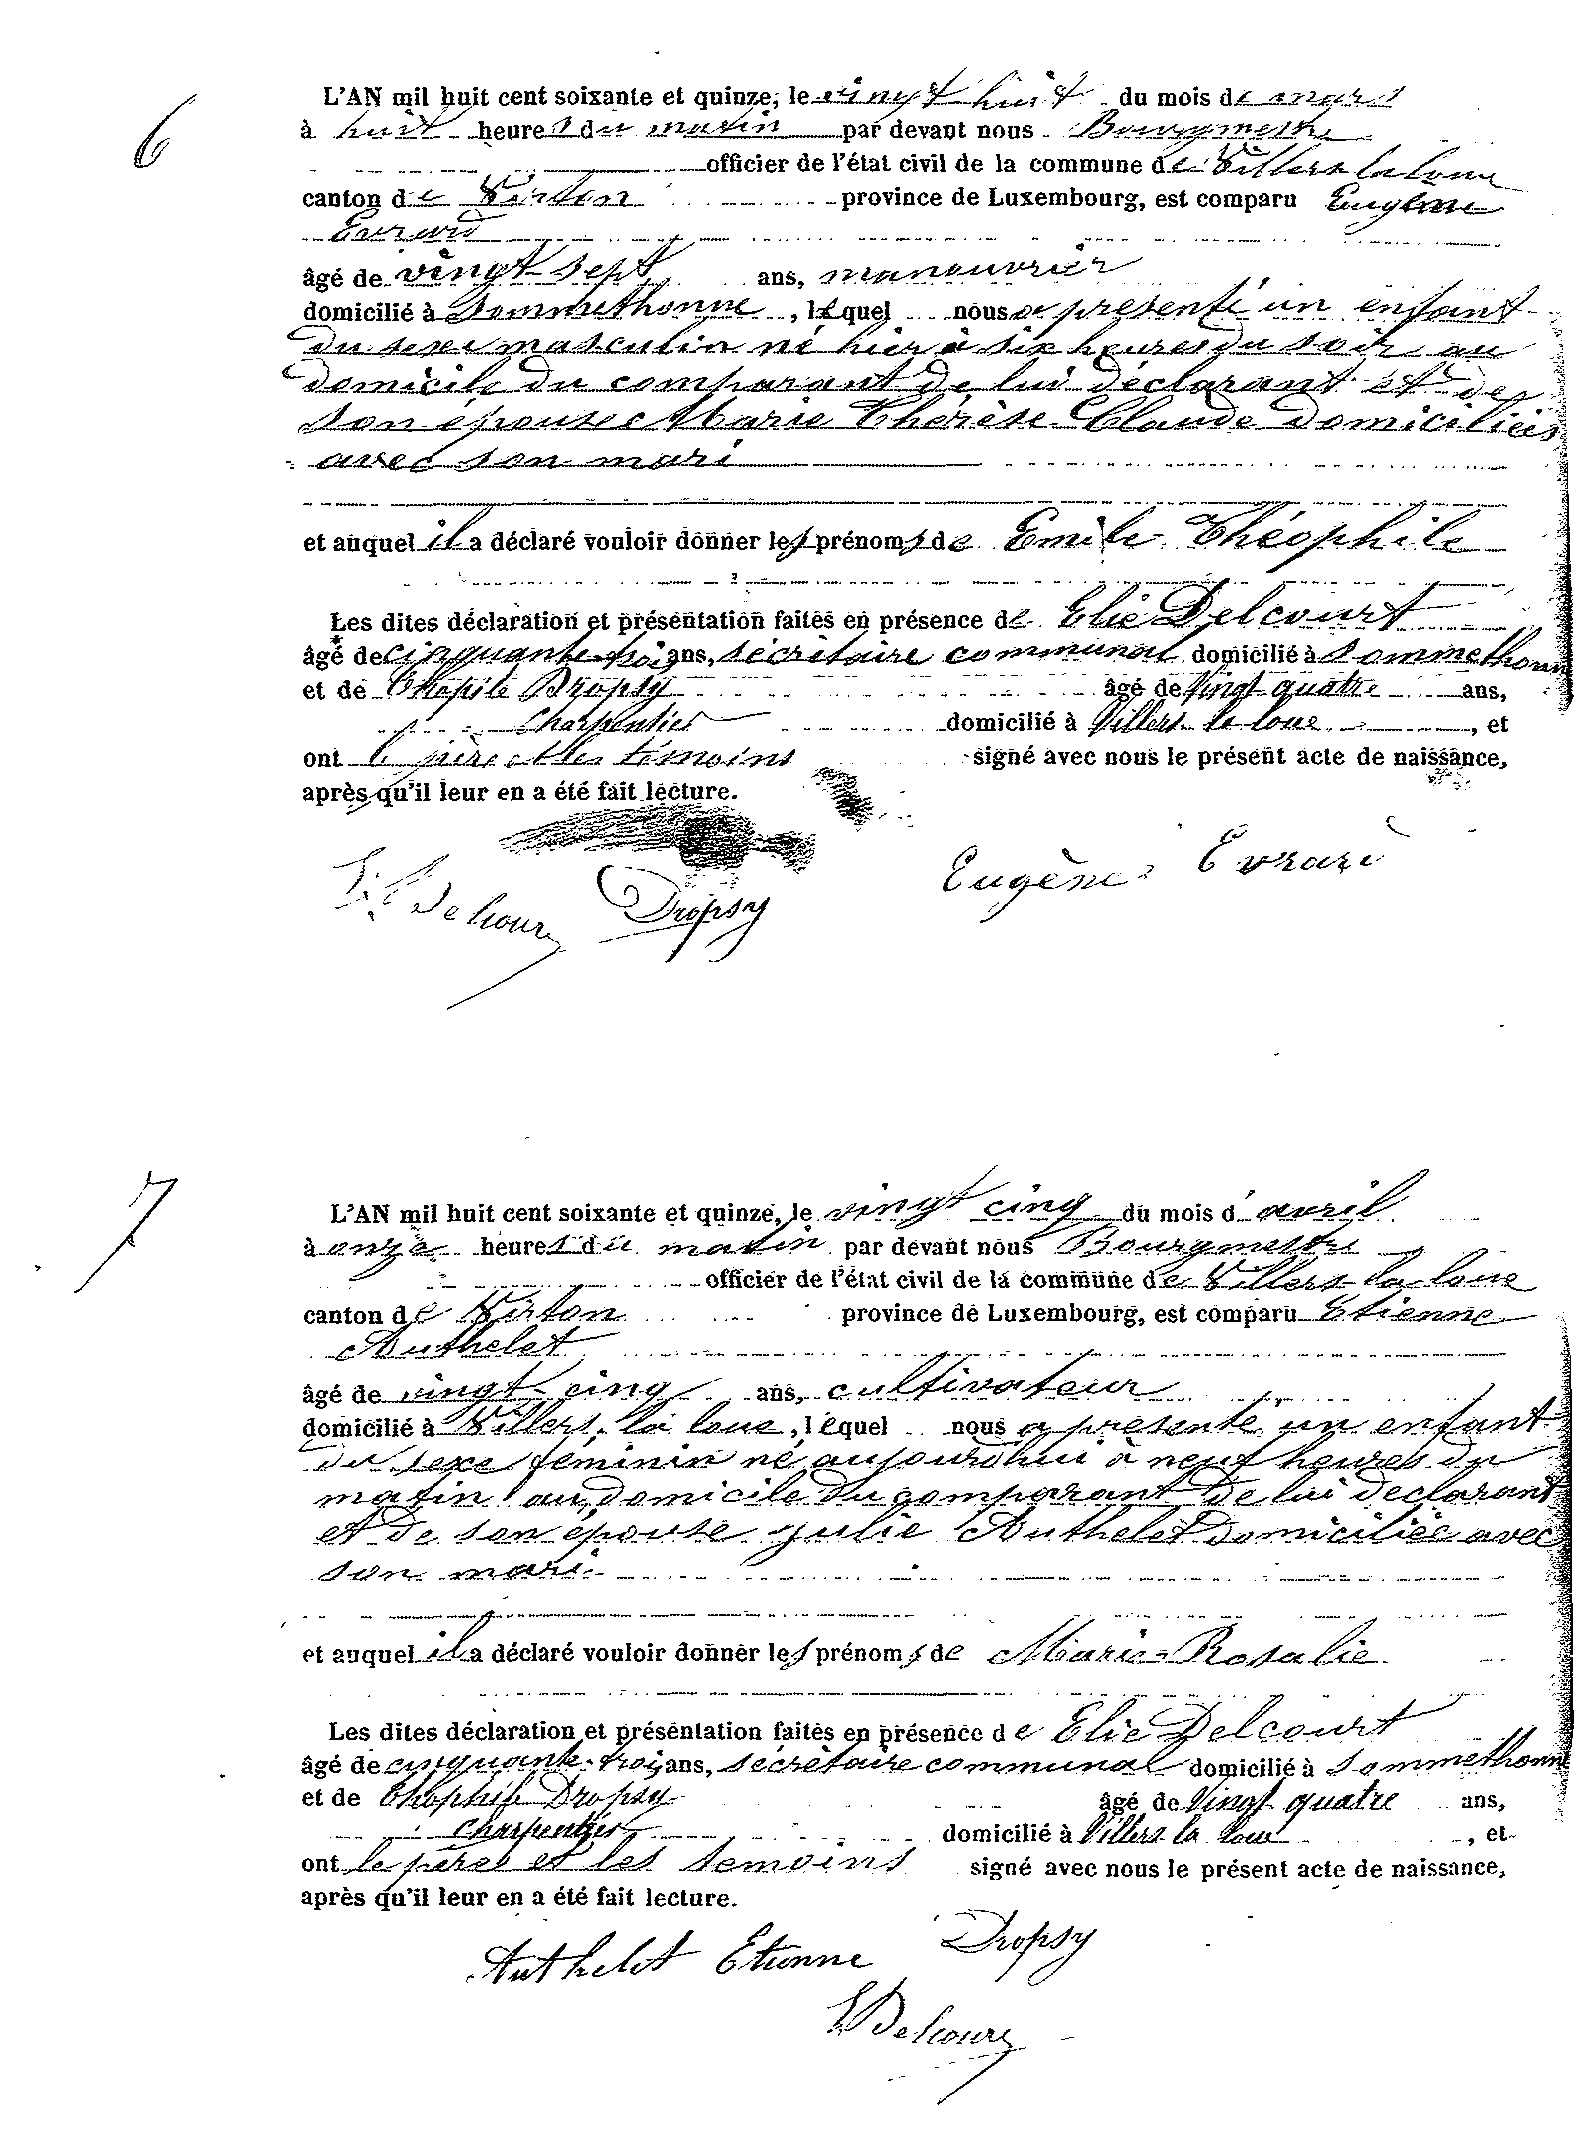 6
L'AN mil huit cent soixante et quinze, le vingt huit du mois de mars
à huit heures du matin par devant nous Bourgmestre
officier de l'état civil de la commune de Villers la loue
canton de Virton province de Luxembourg, est comparu Eugène
Evrard
âgé de vingt sept ans, manouvrier
domicilié à Sommethonne, lequel nous a présenté un enfant
du sexe masculin né hier à six heures du soir au
domicile du comparant de lui déclarant et de
son épouse Marie Thérèse Claude domiciliée
avec son mari
et auquel il a déclaré vouloir donner les prénoms de Emile Théophile
Les dites déclaration et présentation faites en présence de Elie Delcourt
âgé de cinquante trois ans, secrétaire communal domicilié à Sommethonne
et de Théophile Dropsy âgé de Vingt quatre ans,
Charpentier domicilié à Villers la loue, et
ont le père et les témoins signé avec nous le présent acte de naissance,
après qu'il leur en a été fait lecture.
Delcour Dropsy Eugène Evrard
7
L'AN mil huit cent soixante et quinze, le vingt cinq du mois d'avril
à onze heures du matin par devant nous Bourgmestre
officier de l'état civil de la commune de Villers la loue
canton de Virton province de Luxembourg, est comparu Etienne
Authelet
âgé de vingt cinq ans, cultivateur
domicilié à Villers la loue, lequel nous a présenté un enfant
du sexe féminin né aujourd'hui à neuf heures du
matin au domicile du comparant de lui déclarant
et de son épouse Julie Authelet domiciliée avec
son mari
et auquel il a déclaré vouloir donner les prénoms de Marie-Rosalie
Les dites déclaration et présentation faites en présence de Elie Delcourt
âgé de cinquante-trois ans, secrétaire communal domicilié à Sommethonne
et de Théophile Dropsy âgé de Vingt quatre ans,
Charpentier domicilié à Villers la loue, et
ont le père et les témoins signé avec nous le présent acte de naissance,
après qu'il leur en a été fait lecture.
Authelet Etienne Dropsy
E Delcourt